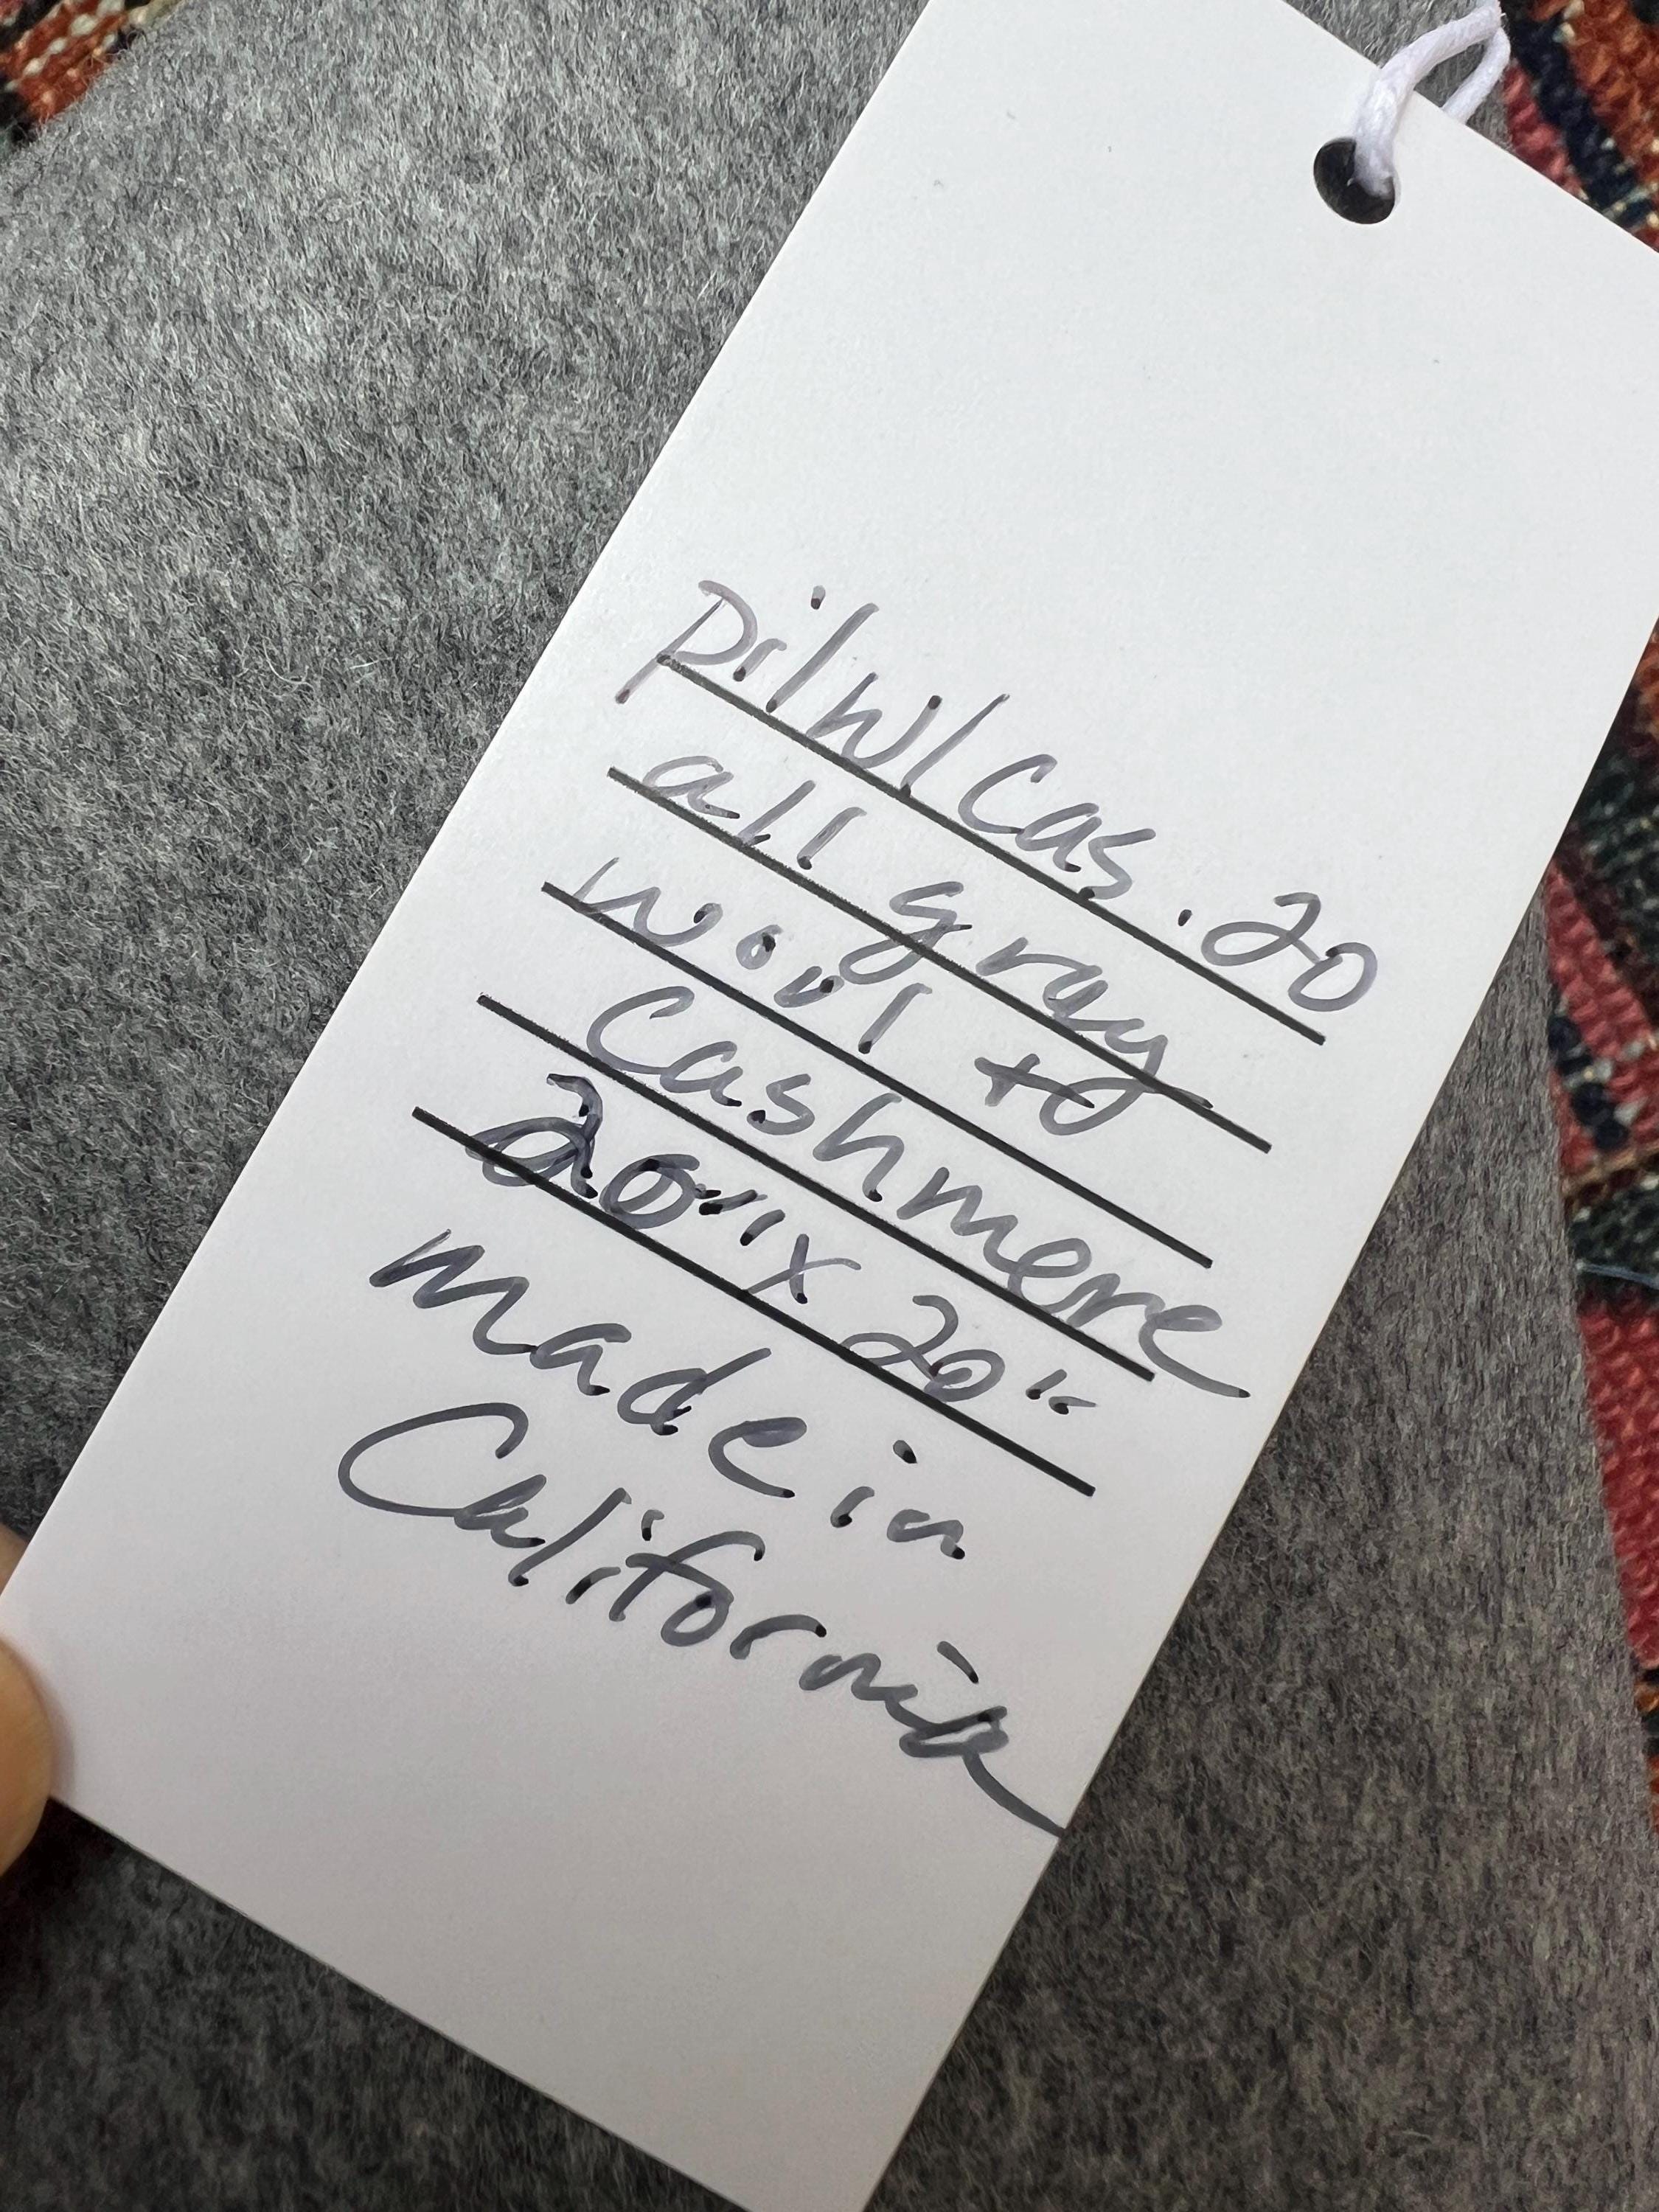 pi/w/cas.20
all gray
wool to
Cashmere
20"x 20"
made in
California